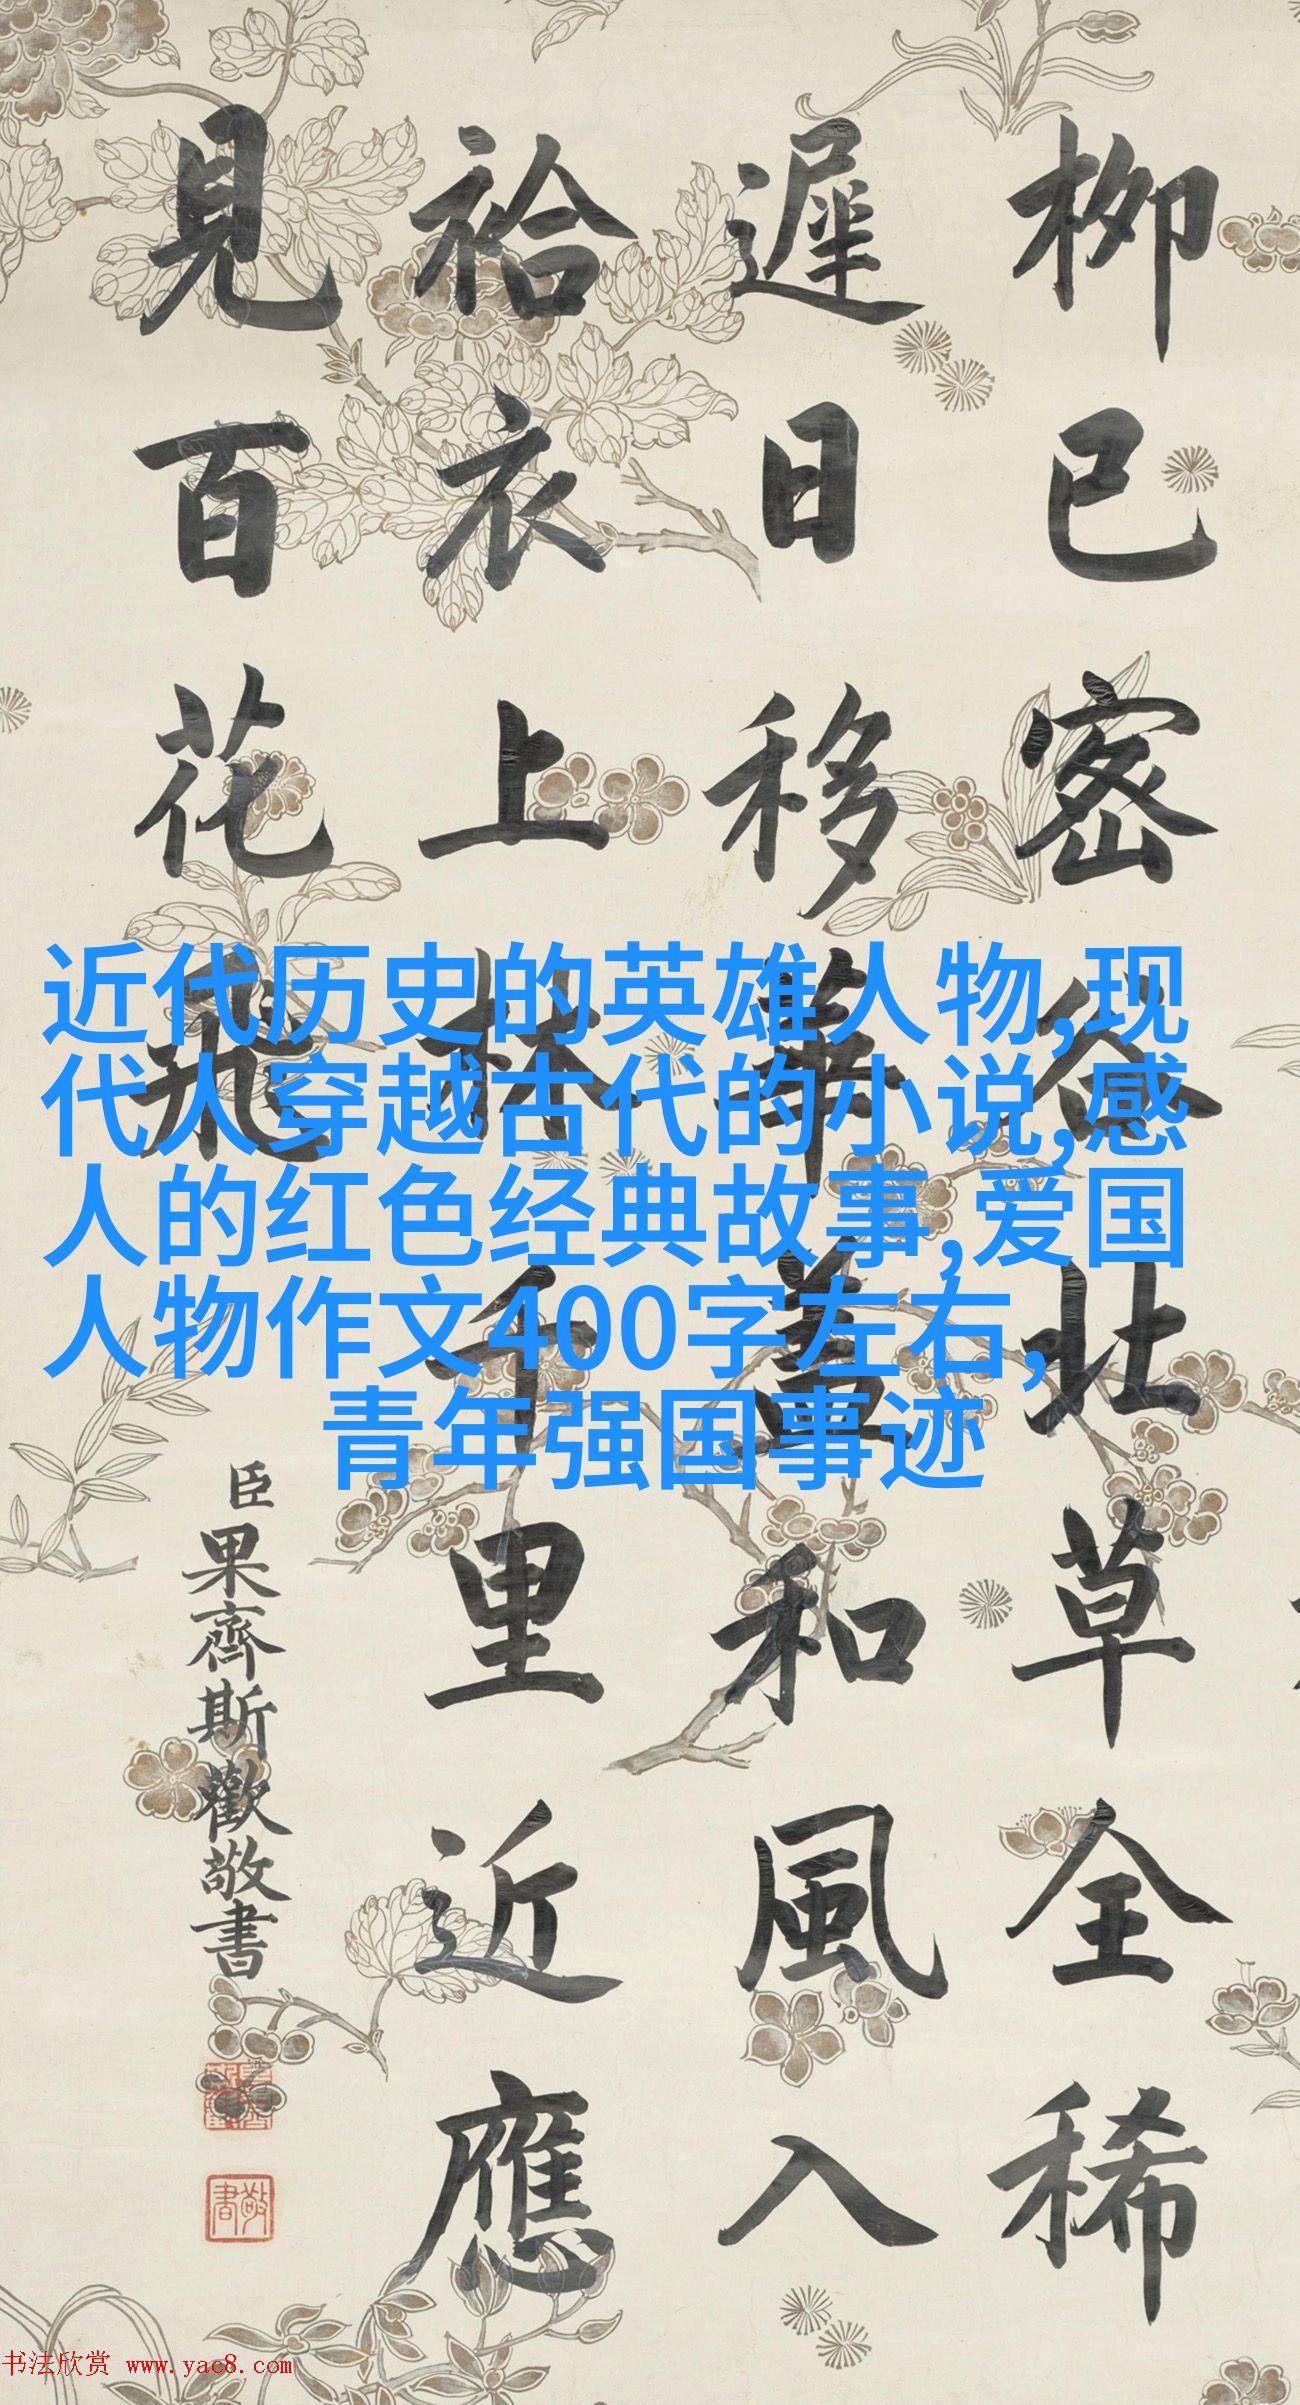 柳已密谷北草全稀
遲日移華蓋和風入
袷衣上林千里近應
見百花飛
臣果齊斯歡敬書
敬書
近代历史的英雄人物,现
代人穿越古代的小说,感
人的红色经典故事,爱国
人物作文400字左右,
青年强国事迹
书法欣赏 www.yac8.com